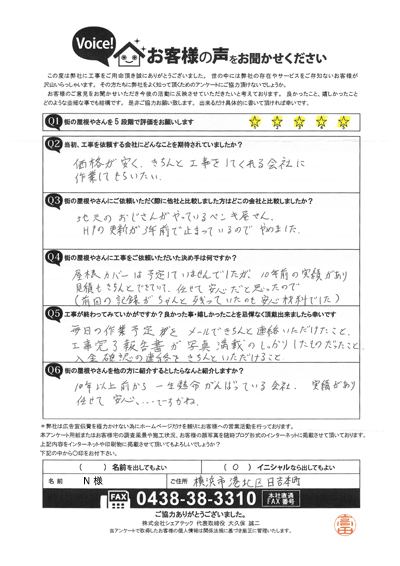 Voice! お客様の声をお聞かせください
この度は弊社に工事をご用命頂き誠にありがとうございました。世の中には弊社の存在やサービスをご存知ないお客様が
沢山いらっしゃいます。その方たちに弊社をよく知って頂くためのアンケートにご協力頂けないでしょうか。
お客様のご意見をお聞かせいただき今後の活動に反映させていただきたいと考えております。良かったこと、嬉しかったこと
どのような些細な事でも結構です。是非ご協力お願い致します。出来るだけ具体的に書いて頂ければ幸いです。
Q1 街の屋根やさんを5段階で評価をお願いします
Q2 当初、工事を依頼する会社にどんなことを期待されていましたか?
価格が安く、きちんと工事をしてくれる会社に
作業してもらいたい。
Q3 街の屋根やさんにご依頼いただく際に他社と比較しました方はどこの会社と比較しましたか?
地元のおじさんがやっているペンキ屋さん。
HPの更新が3年前で止まっているのでやめました。
Q4 街の屋根やさんに工事をご依頼いただいた決め手は何ですか?
屋根カバーは予定していませんでしたが、10年前の実績があり
見積もきちんとできていて、任せて安心だと思ったので
(前回の記録がちゃんと残っていたのも安心材料でした)
Q5 工事が終わってみていかがですか?良かった事・嬉しかったことを忌憚なく頂戴出来ましたら幸いです
毎日の作業予定をメールできちんと連絡いただけたこと、
工事完了報告書が写真満載のしっかりしたものだったこと、
入金確認の連絡をきちんといただけること
Q6 街の屋根やさんを他の方に紹介するとしたらなんと紹介しますか?
10年以上前から一生懸命がんばっている会社、実績があり
任せて安心、…ですかね。
＊弊社は広告宣伝費を極力かけない為にホームページだけを頼りにお客様への営業活動を行っております。
本アンケート用紙またはお客様宅の調査風景や施工状況、お客様の顔写真を随時ブログ形式のインターネットに掲載させて頂いております。
上記内容をインターネットや印刷物に掲載させて頂いてもよろしいでしょうか?
下記の中から〇印をお付け下さい。
( ) 名前を出してもよい ( O ) イニシャルなら出してもよい
名前 N 様 ご住所 横浜市港北区日吉本町
FAX 0438-38-3310 本社直通 FAX番号
ご協力ありがとうございました。
株式会社シェアテック 代表取締役 大久保 誠二
当アンケートで取得したお客様の個人情報は関係法規に基づき厳正に管理いたします。